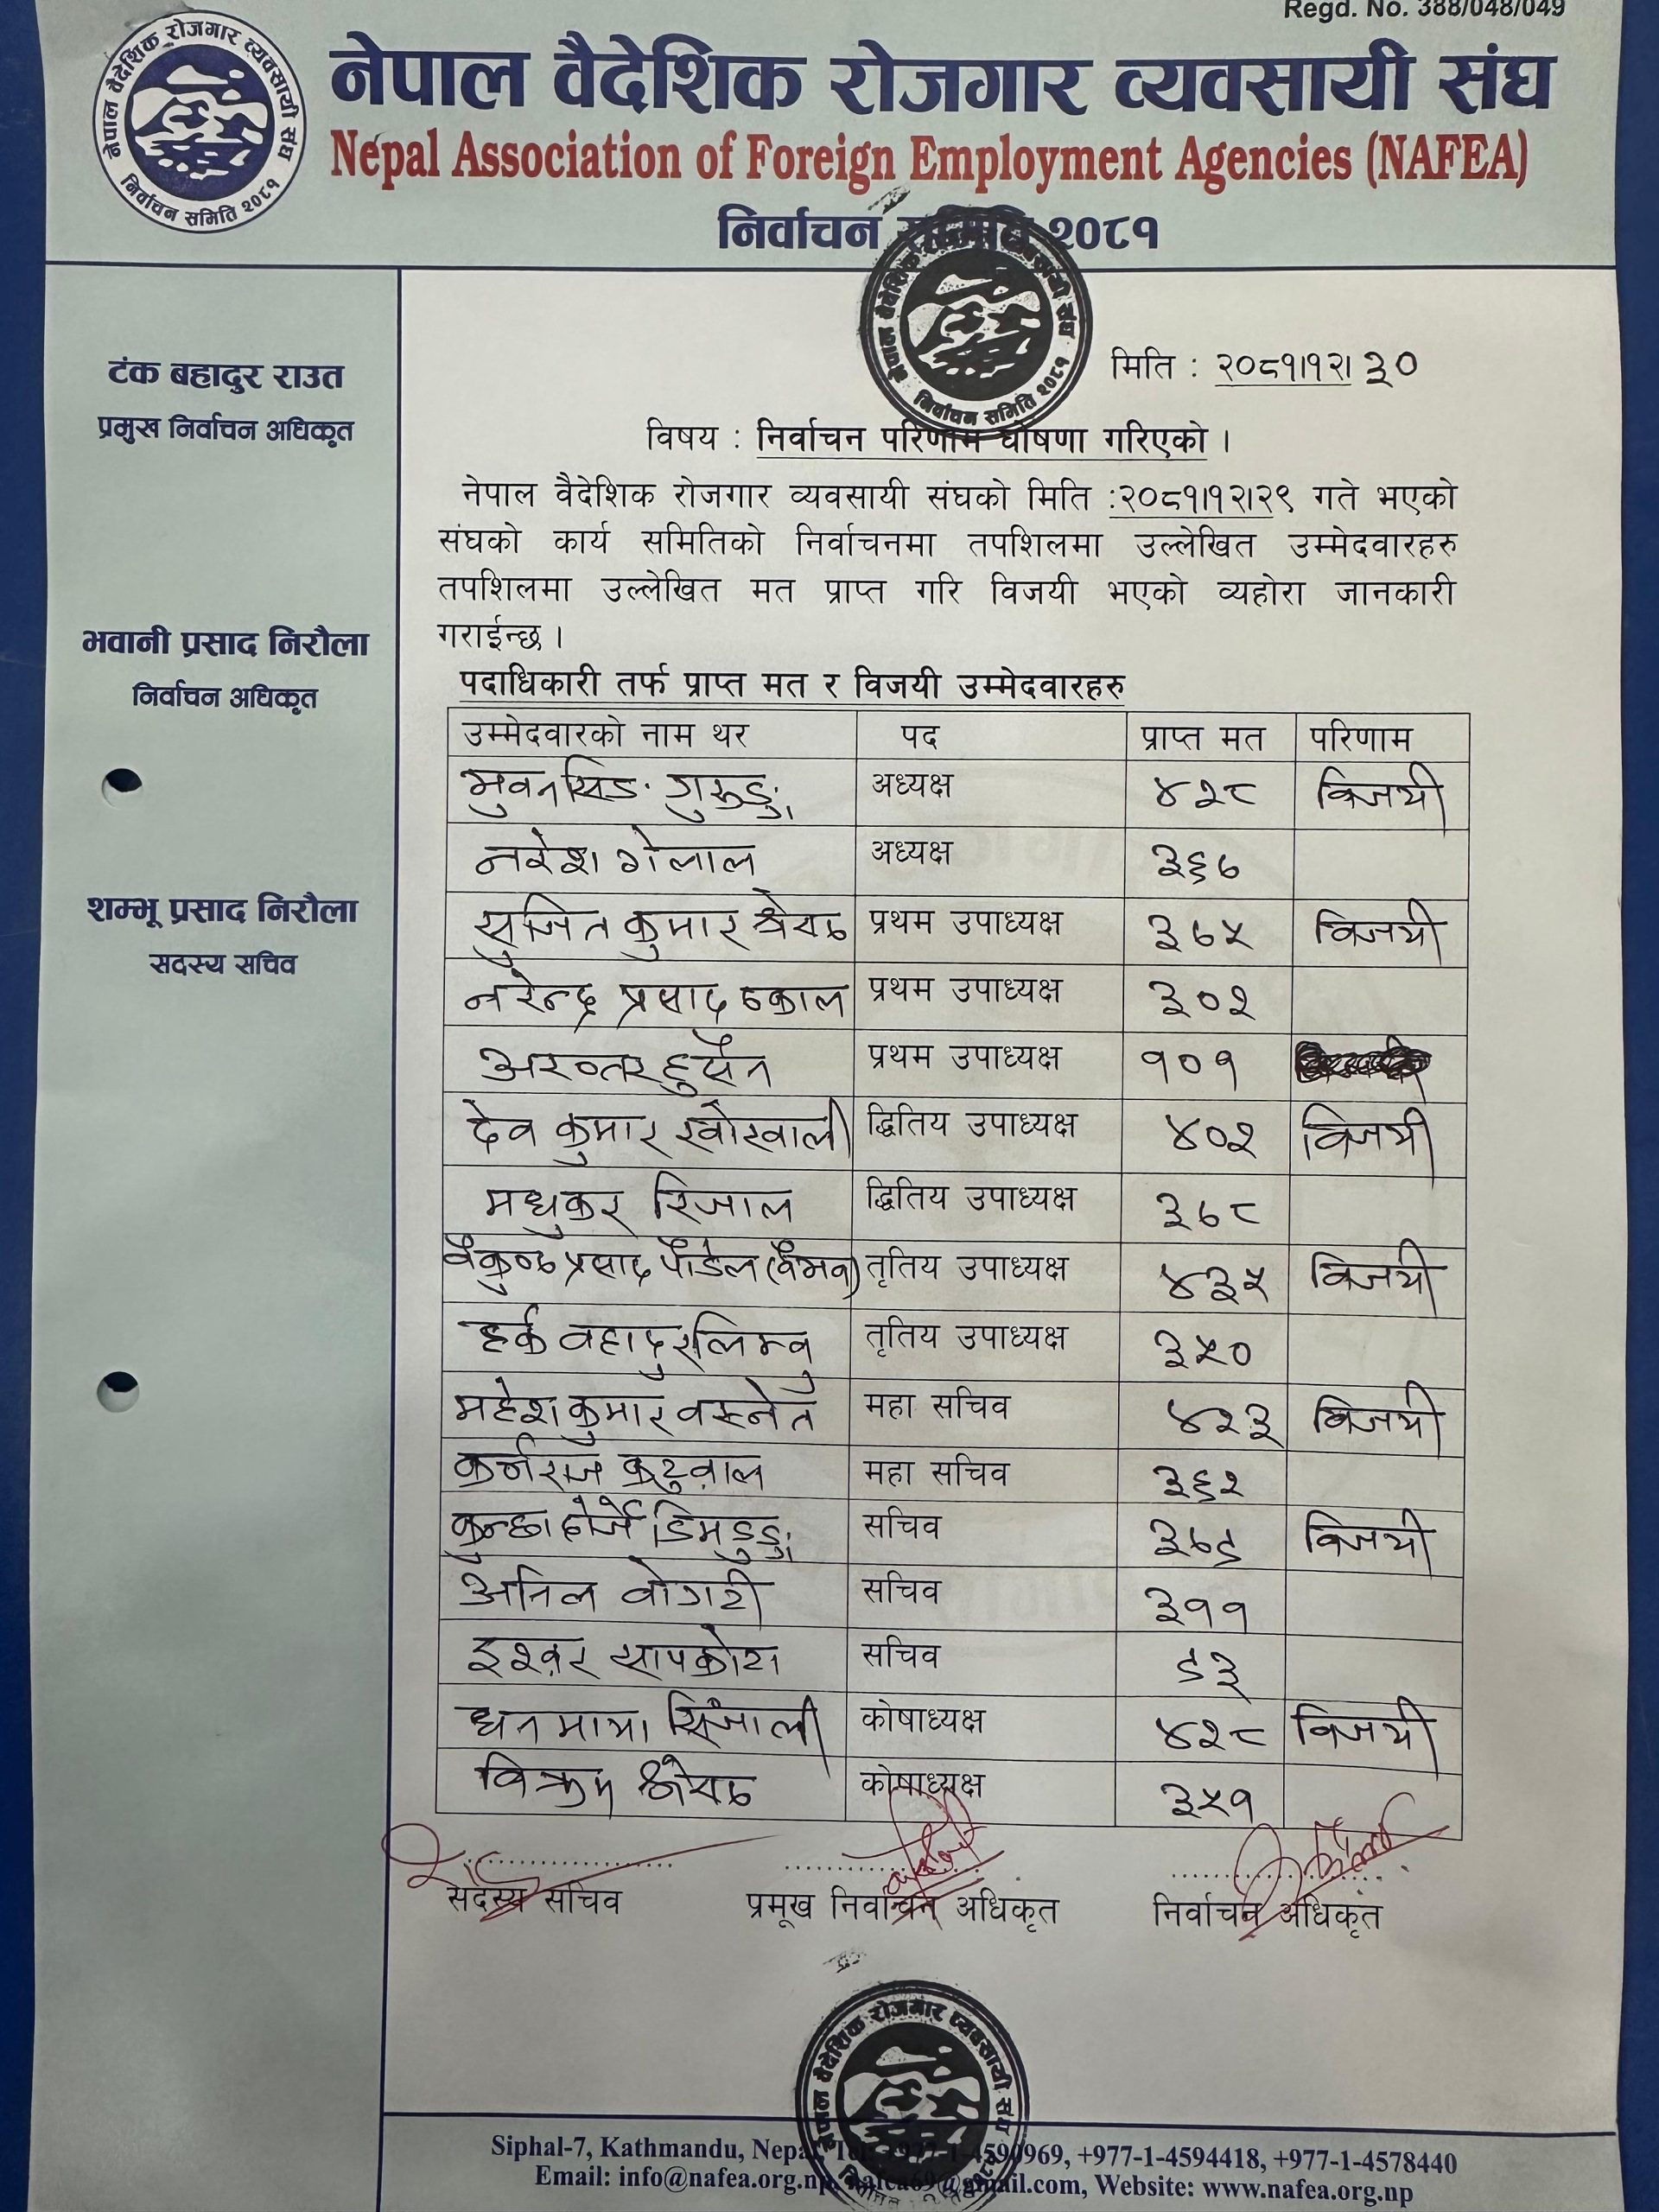 Regd. No. 388/048/049
नेपाल वैदेशिक रोजगार व्यवसायी संघ
Nepal Association of Foreign Employment Agencies (NAFEA)
निर्वाचन समिति २०८१
नेपाल वैदेशिक रोजगार व्यवसायी संघ
निर्वाचन समिति २०८१
टंक बहादुर राउत
प्रमुख निर्वाचन अधिकृत
भवानी प्रसाद निरौला
निर्वाचन अधिकृत
शम्भू प्रसाद निरौला
सदस्य सचिव
मिति : २०८१।१२। ३०
विषय : निर्वाचन परिणाम घोषणा गरिएको ।
नेपाल वैदेशिक रोजगार व्यवसायी संघको मिति :२०८१।१२।२९ गते भएको
संघको कार्य समितिको निर्वाचनमा तपशिलमा उल्लेखित उम्मेदवारहरु
तपशिलमा उल्लेखित मत प्राप्त गरि विजयी भएको व्यहोरा जानकारी
गराईन्छ ।
पदाधिकारी तर्फ प्राप्त मत र विजयी उम्मेदवारहरु
उम्मेदवारको नाम थर पद प्राप्त मत परिणाम
भुवनसिङ गुरुङ्ग अध्यक्ष ४२८ विजयी
नरेश गेलाल अध्यक्ष ३६७
सुजित कुमार श्रेष्ठ प्रथम उपाध्यक्ष ३७५ विजयी
नरेन्द्र प्रसाद ढकाल प्रथम उपाध्यक्ष ३०२
अख्तर हुसैन प्रथम उपाध्यक्ष १०१
देव कुमार खोरवाली द्धितिय उपाध्यक्ष ४०२ विजयी
मधुकर रिजाल द्धितिय उपाध्यक्ष ३७८
वैकुण्ठ प्रसाद पौडेल (वैभव) तृतिय उपाध्यक्ष ४३५ विजयी
हर्क वहादुर लिम्वु तृतिय उपाध्यक्ष ३५०
महेश कुमार वस्नेत महा सचिव ४२३ विजयी
कर्नराज कटुवाल महा सचिव ३६२
कुन्छा दोर्जे डिमडुङ्ग सचिव ३७९ विजयी
अनिल वोगटी सचिव ३११
इश्वर सापकोटा सचिव ९३
धनमाया सिंजाली कोषाध्यक्ष ४२८ विजयी
विक्रम श्रेष्ठ कोषाध्यक्ष ३५१
सदस्य सचिव प्रमूख निर्वाचन अधिकृत निर्वाचन अधिकृत
नेपाल वैदेशिक रोजगार व्यवसायी संघ
Siphal-7, Kathmandu, Nepal, +977-1-4590969, +977-1-4594418, +977-1-4578440
Email: info@nafea.org.np, nafea69@gmail.com, Website: www.nafea.org.np